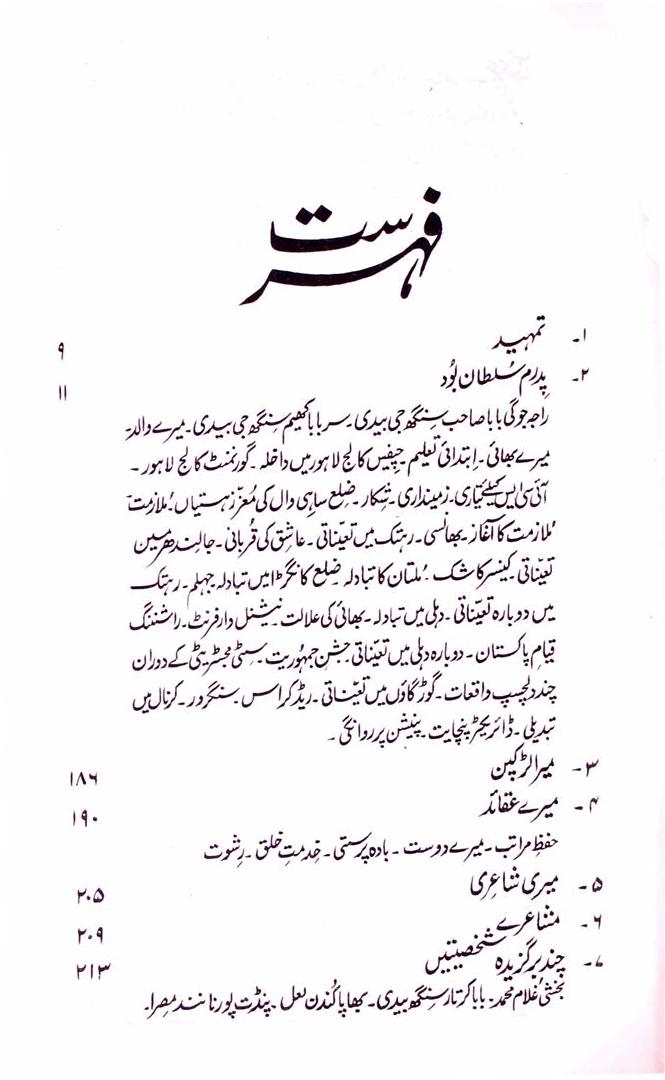 فہرست
۱۔ تمہید ۹
۲۔ پِدرم سُلطان بُود ۱۱
راجہ جوگی بابا صاحب سنگھ جی بیدی۔ سر بابا کھیم سنگھ جی بیدی۔ میرے والد۔
میرے بھائی۔ ابتدائی تعلیم۔ چیفس کالج لاہور میں داخلہ۔ گورنمنٹ کالج لاہور۔
آئی سی ایس کیلئے تیاری۔ زمینداری۔ شکار۔ ضلع ساہی وال کی معزز ہستیاں۔ مُلازمت
مُلازمت کا آغاز۔ پھانسی۔ رہتک میں تعیناتی۔ عاشق کی قُربانی۔ جالندھر میں
تعیناتی۔ کینسر کا شک۔ مُلتان کا تبادلہ ضلع کانگڑا میں تبادلہ جہلم۔ رہتک
میں دوبارہ تعیناتی۔ دہلی میں تبادلہ۔ بھائی کی علالت۔ نیشنل وار فرنٹ۔ راشننگ
قیامِ پاکستان۔ دوبارہ دہلی میں تعیناتی۔ جشنِ جمہوریت۔ سٹی مجسٹریٹی کے دوران
چند دلچسپ واقعات۔ گوڑگاؤں میں تعیناتی۔ ریڈ کراس۔ سنگرور۔ کرنال میں
تبدیلی۔ ڈائریکٹر پنچایت۔ پنیشن پر روانگی۔
۳۔ میرا لڑکپن ۱۸۶
۴۔ میرے عقائد ۱۹۰
حفظِ مراتب۔ میرے دوست۔ بادہ پرستی۔ خِدمتِ خلق۔ رِشوت
۵۔ میری شاعری ۲۰۵
۶۔ مشاعرے ۲۰۹
۷۔ چند برگزیدہ شخصیتیں ۲۱۳
بخشی غُلام محمد۔ بابا کرتار سنگھ بیدی۔ بھاپا کُندن لعل۔ پنڈت پورنا نند مصرا۔